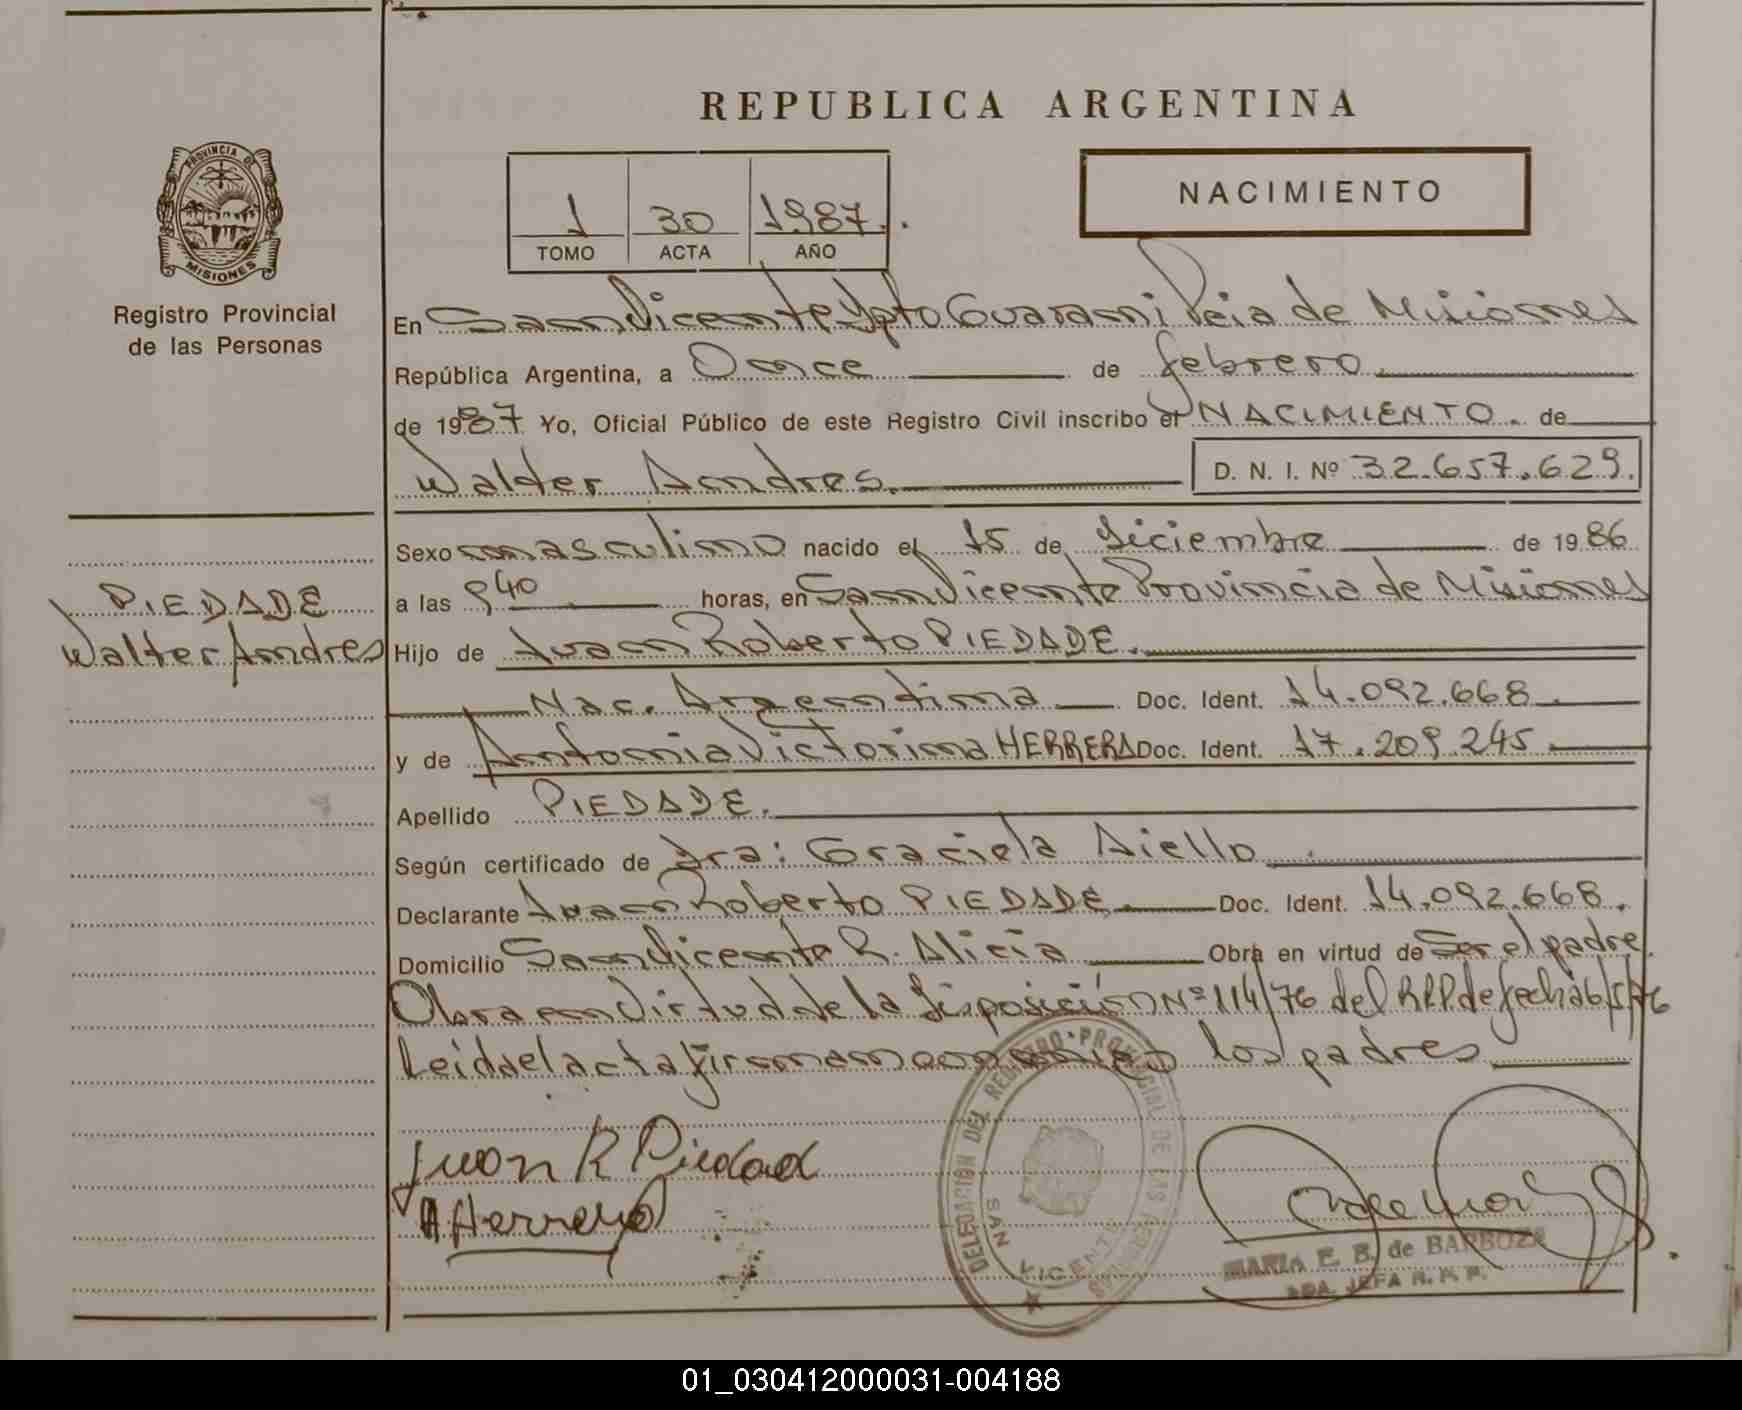 REPUBLICA ARGENTINA
NACIMIENTO
1 30 1987.
TOMO ACTA AÑO
PROVINCIA DE
MISIONES
Registro Provincial
de las Personas
En San Vicente Dpto Guarani Pcia de Misiones
República Argentina, a Once de febrero
de 1987 Yo, Oficial Público de este Registro Civil inscribo el NACIMIENTO. de
Walter Andres. D. N. I. Nº 32.657.629.
Sexo masculino nacido el 15 de Diciembre de 1986
a las 9 40 horas, en San Vicente Provincia de Misiones
PIEDADE
Walter Andres
Hijo de Juan Roberto PIEDADE.
Nac. Argentina Doc. Ident. 14.092.668
y de Antonia Victorina HERRERA Doc. Ident. 17.209.245
Apellido PIEDADE.
Según certificado de Dra: Graciela Aiello
Declarante Juan Roberto PIEDADE Doc. Ident. 14.092.668.
Domicilio San Vicente R. Alicia Obra en virtud de Ser el padre.
Obra en Virtud de la Disposición Nº 114/76 del R.P.P. de fecha 26/5/76
Leida el acta firman conmigo los padres
Juan R Piedad
A Herrera
DELEGACION DEL REGISTRO PROVINCIAL DE LAS PERSONAS
SAN VICENTE
MARIA E. B. de BARBOZA
JEFA R. P. P.
01_030412000031-004188